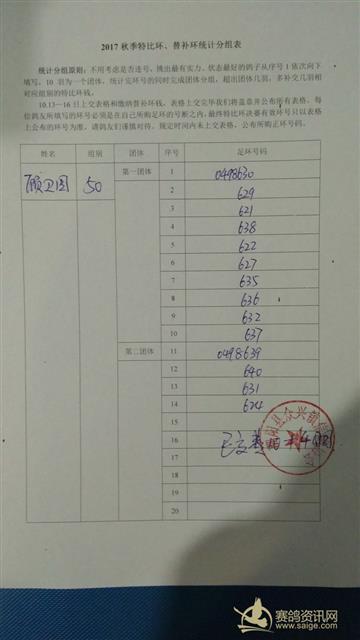 2017 秋季特比环、替补环统计分组表
统计分组原则：不用考虑是否连号，挑出最有实力、状态最好的鸽子从序号 1 依次向下
填写，10 羽为一个团体，统计完环号的同时完成团体分组，超出团体几羽，多补交几羽相
对应组别的特比环钱。
10.13—16 日上交表格和缴纳替补环钱，表格上交完毕我们将盖章并公布所有表格，每
位鸽友所填写的环号必须是在自己所购足环的号断之内，最终特比环决赛有效环号只以表格
上公布的环号为准。请鸽友们谨慎对待。规定时间内未上交表格，公布所购正环号码。
姓名 组别 团体 序号 足环号码
顾卫国 50 第一团体 1 0498630
2 629
3 621
4 638
5 622
6 627
7 635
8 636
9 632
10 637
第二团体 11 0498639
12 640
13 631
14 624
15
16 已交
17
18
19
20
赛鸽资讯网
www.saige.com